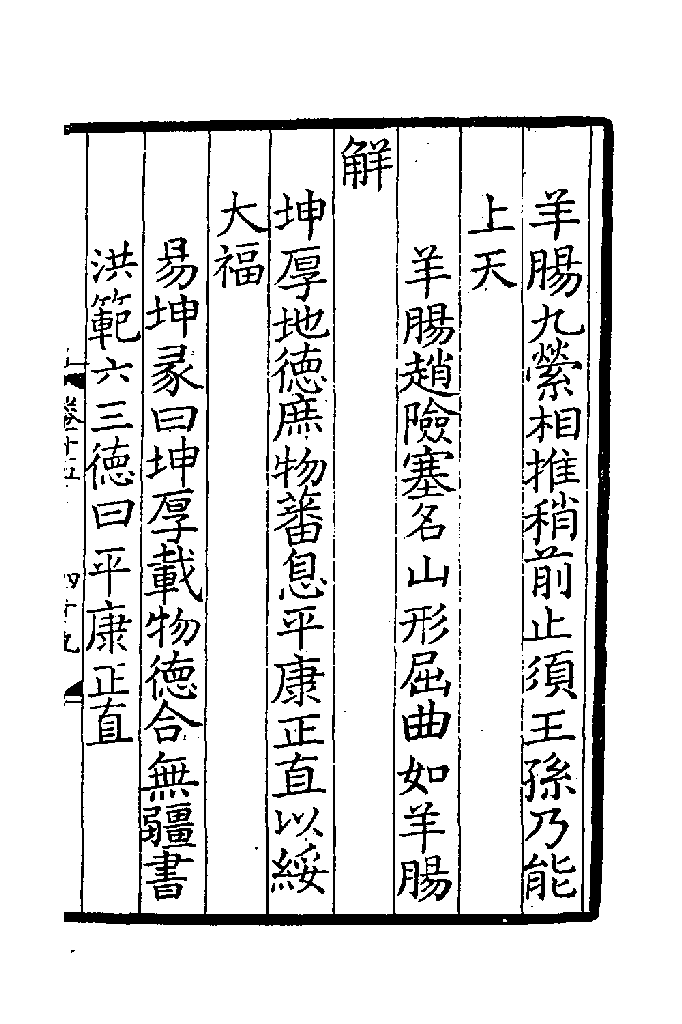 羊腸九縈相推稍前止須王孫乃能
上天
羊腸趙險塞名山形屈曲如羊腸
解
坤厚地德庶物蕃息平康正直以綏
大福
易坤彖曰坤厚載物德合無疆書
洪範六三德曰平康正直
卷十五
四十九